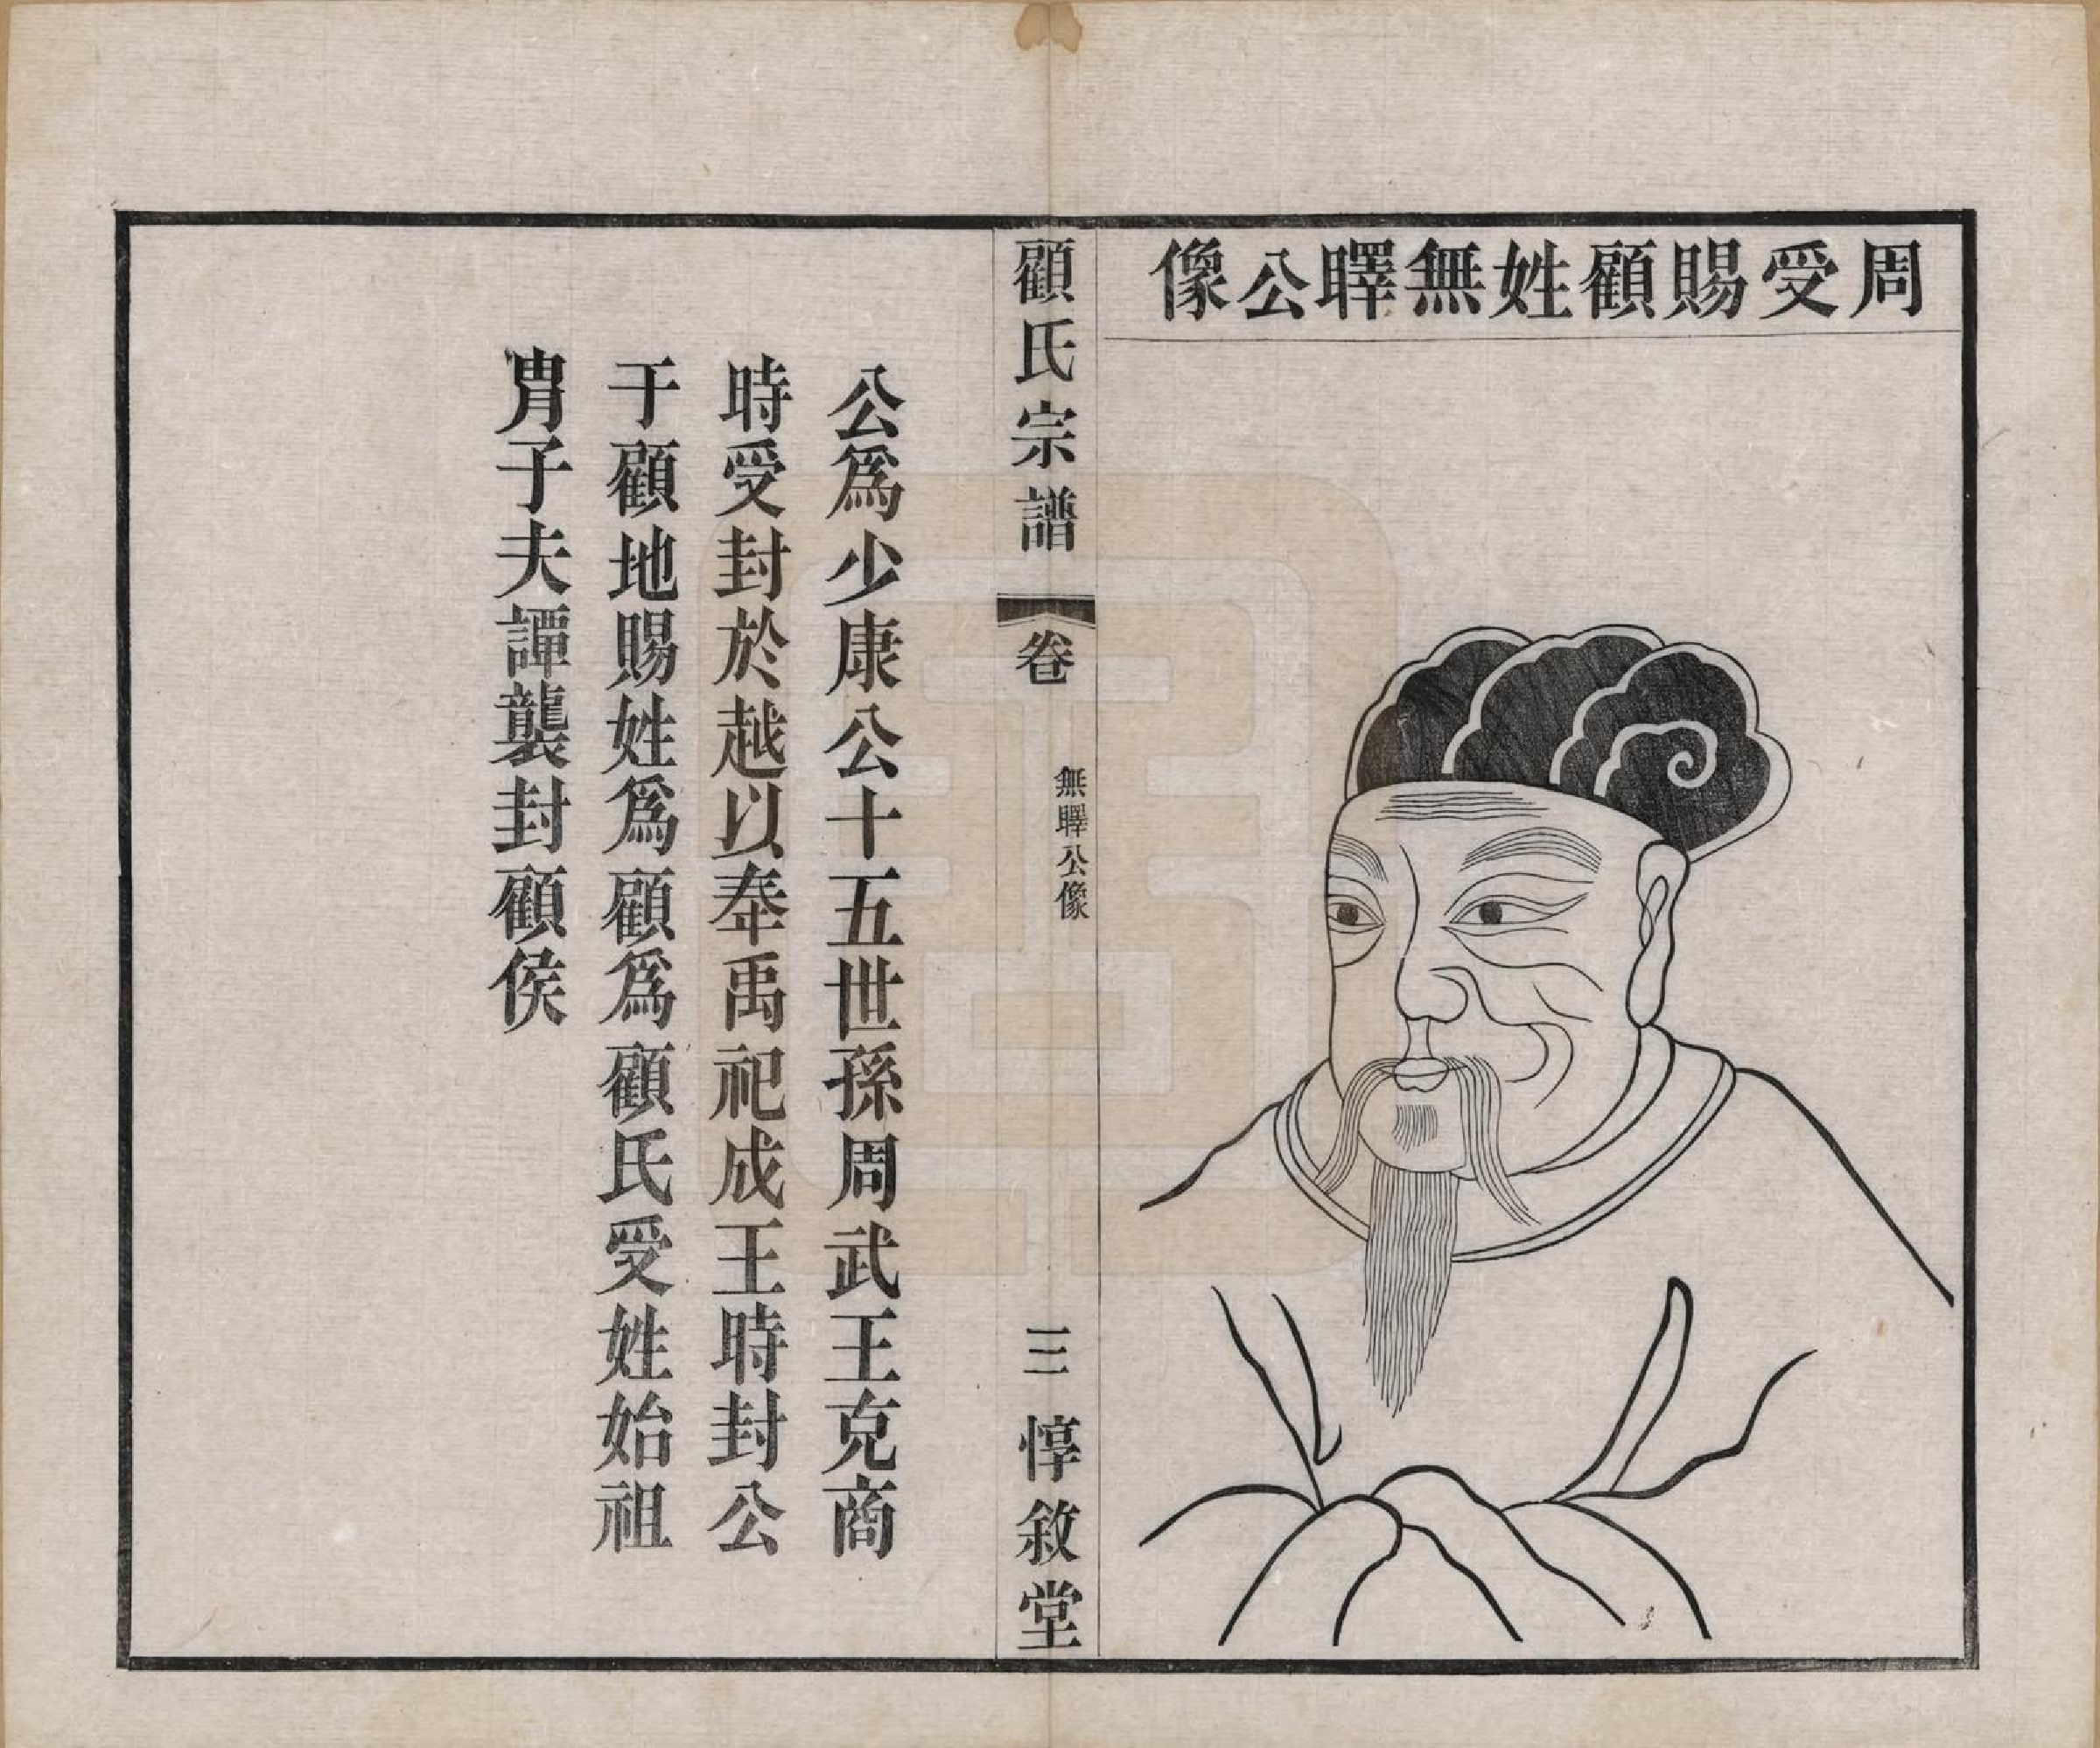 周受賜顧姓無睪公像
顧氏宗譜
卷
無睪公像
三
惇敘堂
公爲少康公十五世孫周武王克商
時受封於越以奉禹祀成王時封公
于顧地賜姓爲顧爲顧氏受姓始祖
胄子夫譚襲封顧侯